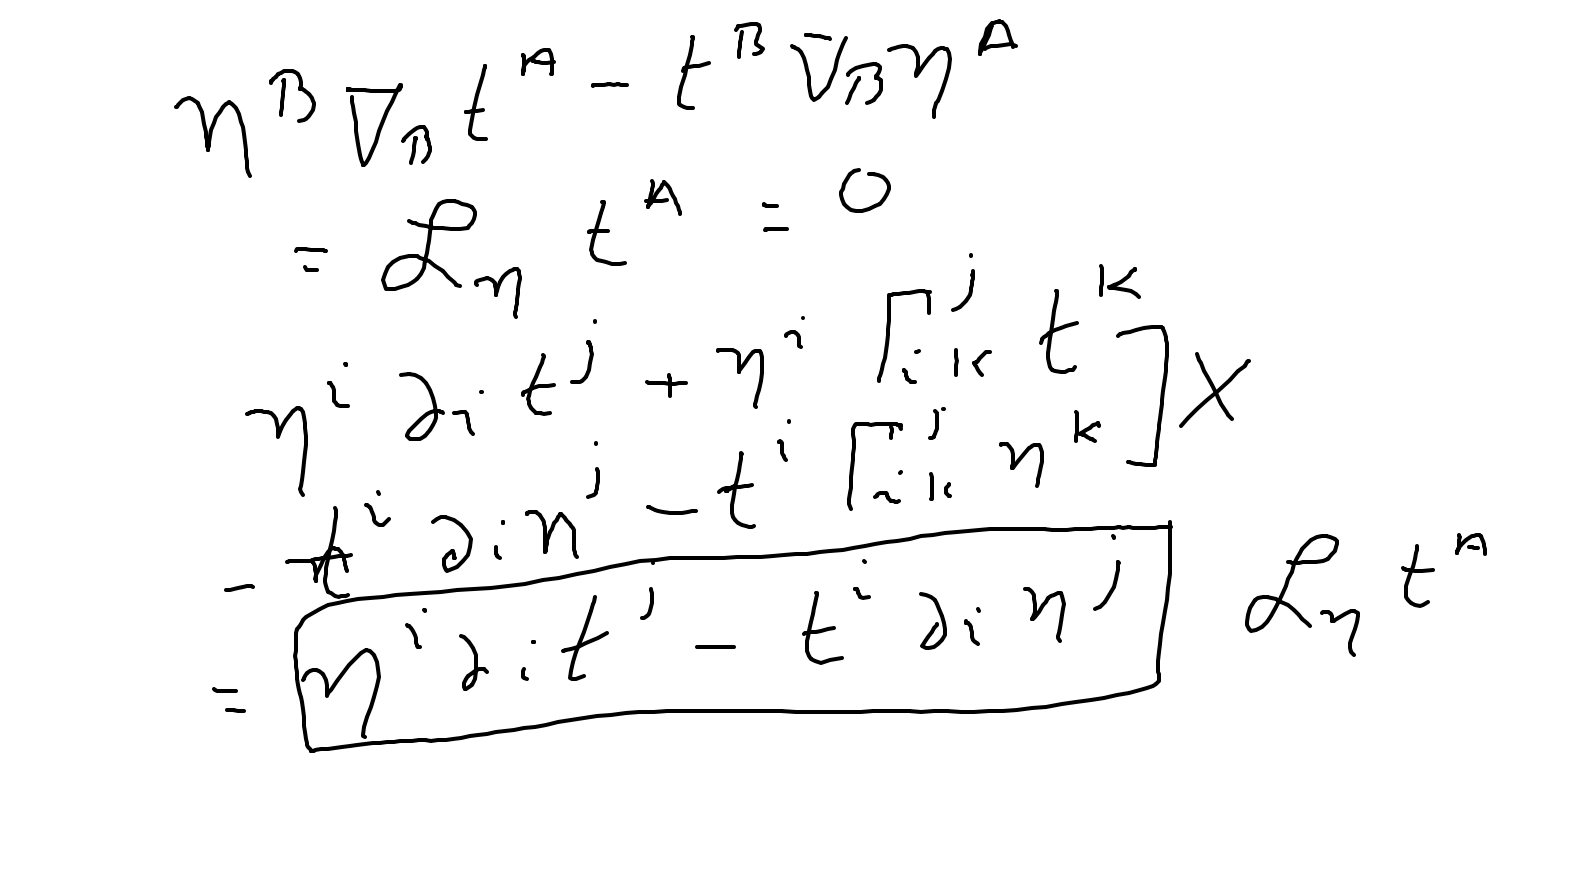 η^B ∇_B t^A − t^B ∇_B η^A
= ℒ_η t^A = 0
η^i ∂_i t^j + η^i Γ^j_{ik} t^k
− t^i ∂_i η^j − t^i Γ^j_{ik} η^k ] X
= η^i ∂_i t^j − t^i ∂_i η^j
ℒ_η t^A